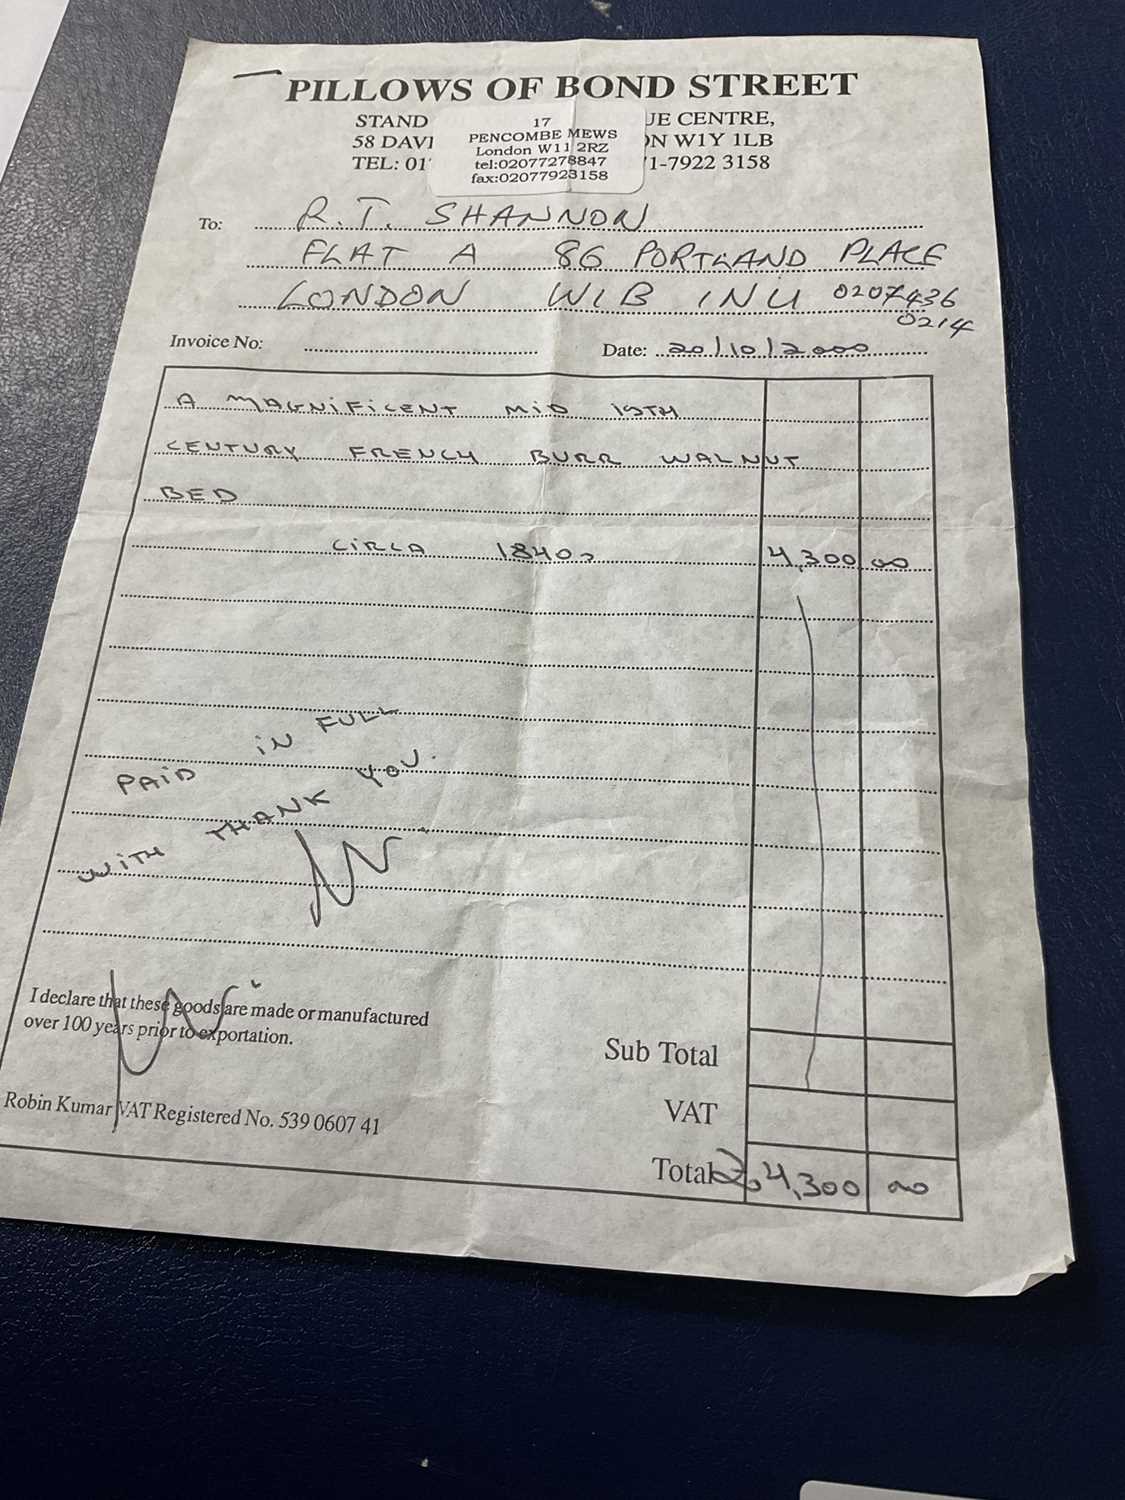 PILLOWS OF BOND STREET
STAND UE CENTRE,
58 DAVI ON W1Y 1LB
TEL: 01 71-7922 3158
17
PENCOMBE MEWS
London W11 2RZ
tel:02077278847
fax:02077923158
To: R.T. SHANNON
FLAT A 86 PORTLAND PLACE
LONDON W1B 1NU 0207436
0214
Invoice No: Date: 20/10/2000
A MAGNIFICENT MID 19TH
CENTURY FRENCH BURR WALNUT
BED
CIRCA 1840s 4,300 00
PAID IN FULL
WITH THANK YOU.
I declare that these goods are made or manufactured
over 100 years prior to exportation.
Robin Kumar VAT Registered No. 539 0607 41
Sub Total
VAT
Total £ 4,300 00